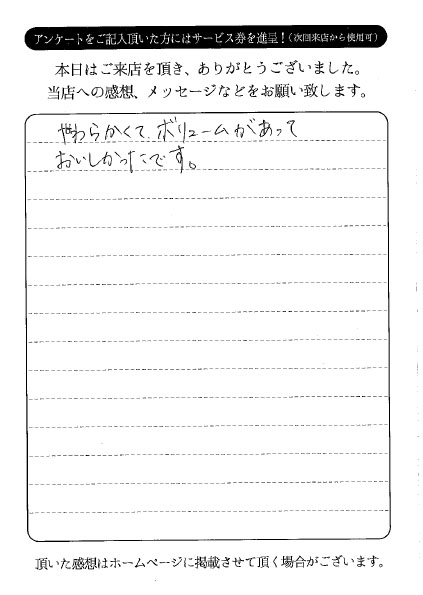 アンケートをご記入頂いた方にはサービス券を進呈！（次回来店から使用可）
本日はご来店を頂き、ありがとうございました。
当店への感想、メッセージなどをお願い致します。
やわらかくて、ボリュームがあって
おいしかったです。
頂いた感想はホームページに掲載させて頂く場合がございます。